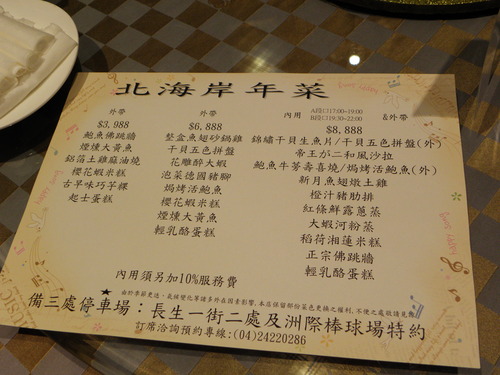 北海岸年菜
外帶
$3,988
鮑魚佛跳牆
煙燻大黃魚
鋁箔土雞麻油燒
櫻花蝦米糕
古早味巧芋粿
起士蛋糕
外帶
$6,888
整盒魚翅砂鍋雞
干貝五色拼盤
花雕醉大蝦
泡菜德國豬腳
焗烤活鮑魚
櫻花蝦米糕
煙燻大黃魚
輕乳酪蛋糕
內用 A段口17:00~19:00 &外帶
B段口19:30~22:00
$8,888
錦繡干貝生魚片/干貝五色拼盤(外)
帝王が二和風沙拉
鮑魚牛蒡壽喜燒/焗烤活鮑魚(外)
新月魚翅燉土雞
橙汁豬肋排
紅條鮮露蔥蒸
大蝦河粉蒸
稻荷湘蓮米糕
正宗佛跳牆
輕乳酪蛋糕
內用須另加10%服務費
由於季節更迭、氣候變化等諸多外在因素影響,本店保留部份菜色更換之權利,不便之處敬請見諒
備三處停車場：長生一街二處及洲際棒球場特約
訂席洽詢預約專線:(04)24220286